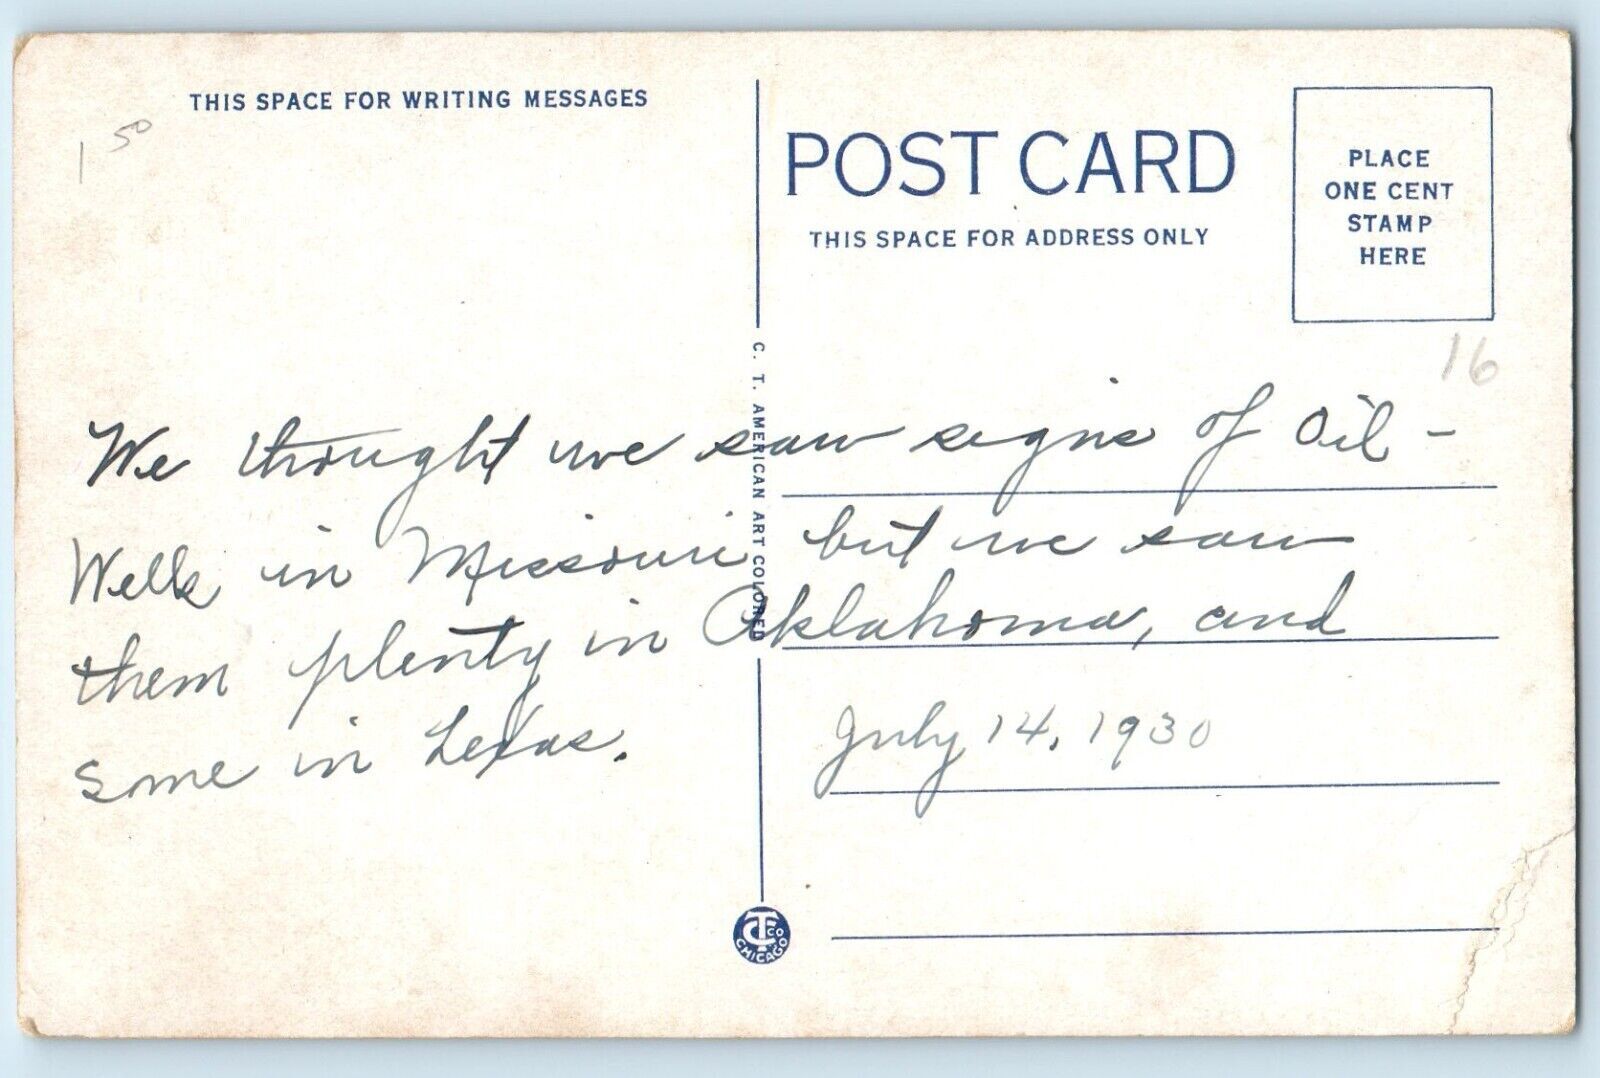 THIS SPACE FOR WRITING MESSAGES
1 50
POST CARD
THIS SPACE FOR ADDRESS ONLY
PLACE
ONE CENT
STAMP
HERE
16
C. T. AMERICAN ART COLORED
We thought we saw signs of Oil -
Wells in Missouri but we saw
them plenty in Oklahoma, and
some in Texas.
July 14, 1930
CT CO
CHICAGO